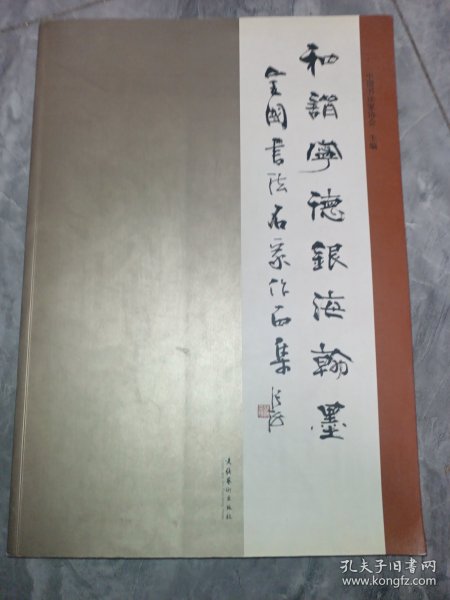 中国书法家协会 主编
和谐宁德银海翰墨
全国书法名家作品集
文化艺术出版社
孔夫子旧书网
www.kongfz.com